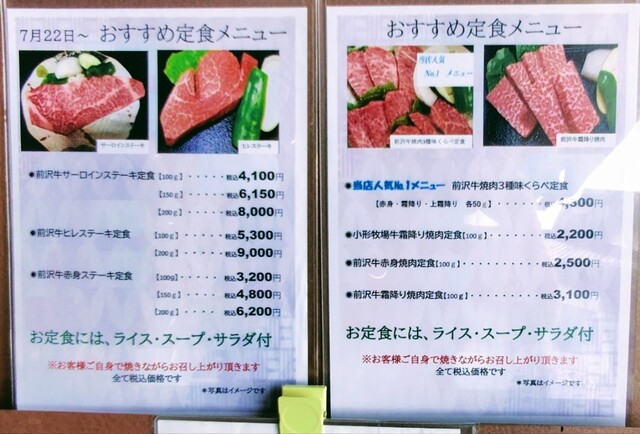 7月22日～ おすすめ定食メニュー
サーロインステーキ
ヒレステーキ
●前沢牛サーロインステーキ定食【100ｇ】・・・・・税込4,100円
【150ｇ】・・・・・税込6,150円
【200ｇ】・・・・・税込8,000円
●前沢牛ヒレステーキ定食 【100ｇ】・・・・・税込5,300円
【200ｇ】・・・・・税込9,000円
●前沢牛赤身ステーキ定食 【100g】・・・・・税込3,200円
【150ｇ】・・・・・税込4,800円
【200ｇ】・・・・・税込6,200円
お定食には、ライス・スープ・サラダ付
※お客様ご自身で焼きながらお召し上がり頂きます
全て税込価格です
＊写真はイメージです
おすすめ定食メニュー
当店人気
No.1 メニュー
前沢牛焼肉3種味くらべ定食
前沢牛霜降り焼肉
●当店人気No.1メニュー 前沢牛焼肉3種味くらべ定食
【赤身・霜降り・上霜降り 各50ｇ】・・・・・・税込
●小形牧場牛霜降り焼肉定食【100ｇ】・・・・・・税込2,200円
●前沢牛赤身焼肉定食【100ｇ】・・・・・・・・税込2,500円
●前沢牛霜降り焼肉定食【100ｇ】・・・・・・・・税込3,100円
お定食には、ライス・スープ・サラダ付
※お客様ご自身で焼きながらお召し上がり頂きます
全て税込価格です
＊写真はイメージです